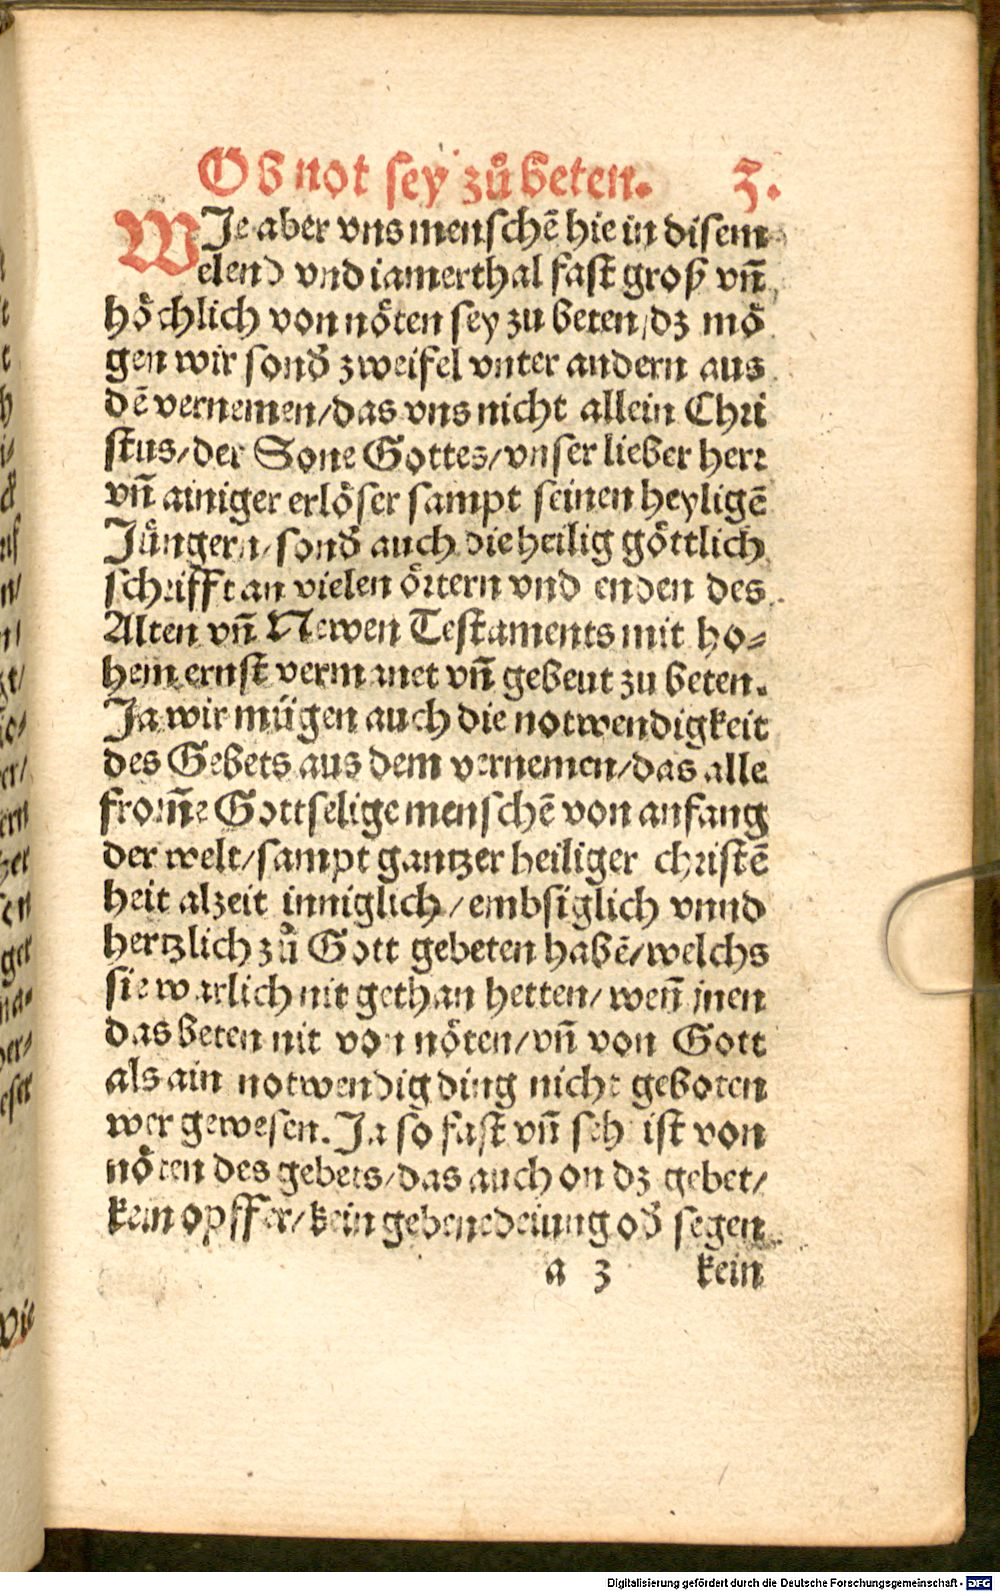 Ob not sey zů beten. 3.
WJe aber vns menschē hie in disem
elend vnd iamerthal fast groß vn̄
höchlich von nöten sey zu beten/ dz mö
gen wir sond̕ zweifel vnter andern aus
dē vernemen/das vns nicht allein Chri
stus/der Sone Gottes/vnser lieber herr
vn̄ ainiger erlöser sampt seinen heyligē
Jüngern/ sond̕ auch die heilig göttlich
schrifft an vielen örtern vnd enden des
Alten vn̄ Newen Testaments mit ho⸗
hem ernst vermanet vn̄ gebeut zu beten.
Ja wir mügen auch die notwendigkeit
des Gebets aus dem vernemen/das alle
from̄e Gottselige menschē von anfang
der welt/sampt gantzer heiliger christē
heit alzeit inniglich/embsiglich vnnd
hertzlich zů Gott gebeten habē/welchs
sie warlich nit gethan hetten/ wen̄ jnen
das beten nit von nöten/vn̄ von Gott
als ain notwendig ding nicht geboten
wer gewesen. Ja so fast vn̄ seh ist von
nöten des gebets/das auch on dz gebet/
kein opffer/kein gebenedeiung od̕ segen
a 3 kein
Digitalisierung gefördert durch die Deutsche Forschungsgemeinschaft - DFG